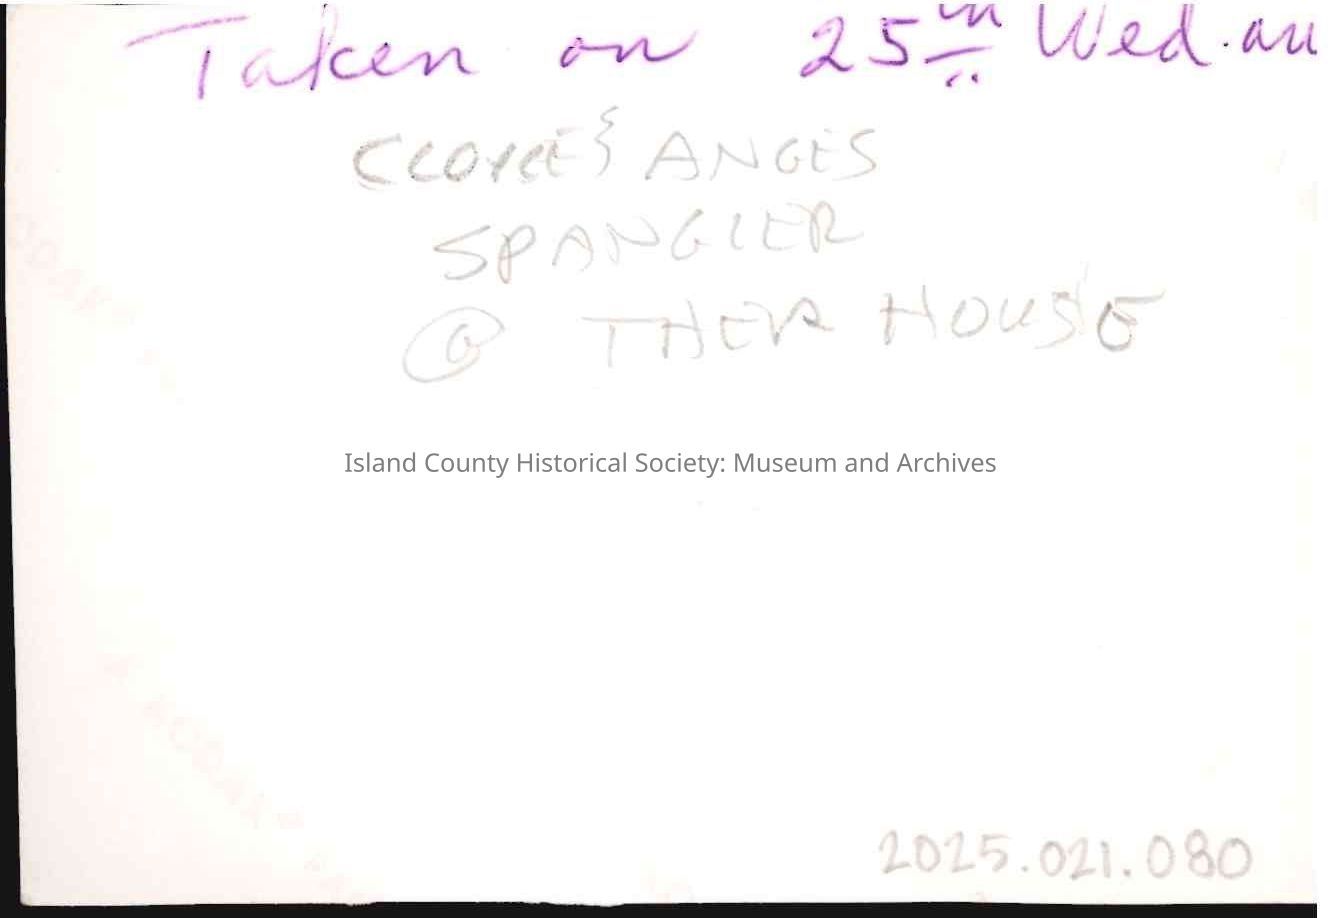 Taken on 25th Wed. an
CLOYCE & ANGES
SPANGLER
@ THEIR HOUSE
Island County Historical Society: Museum and Archives
2025.021.080